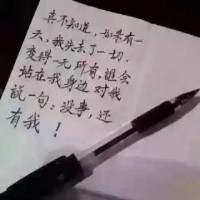 真不知道，如果有一
天，我失去了一切，
变得一无所有，谁会
站在我身边对我
说一句：没事，还
有我！